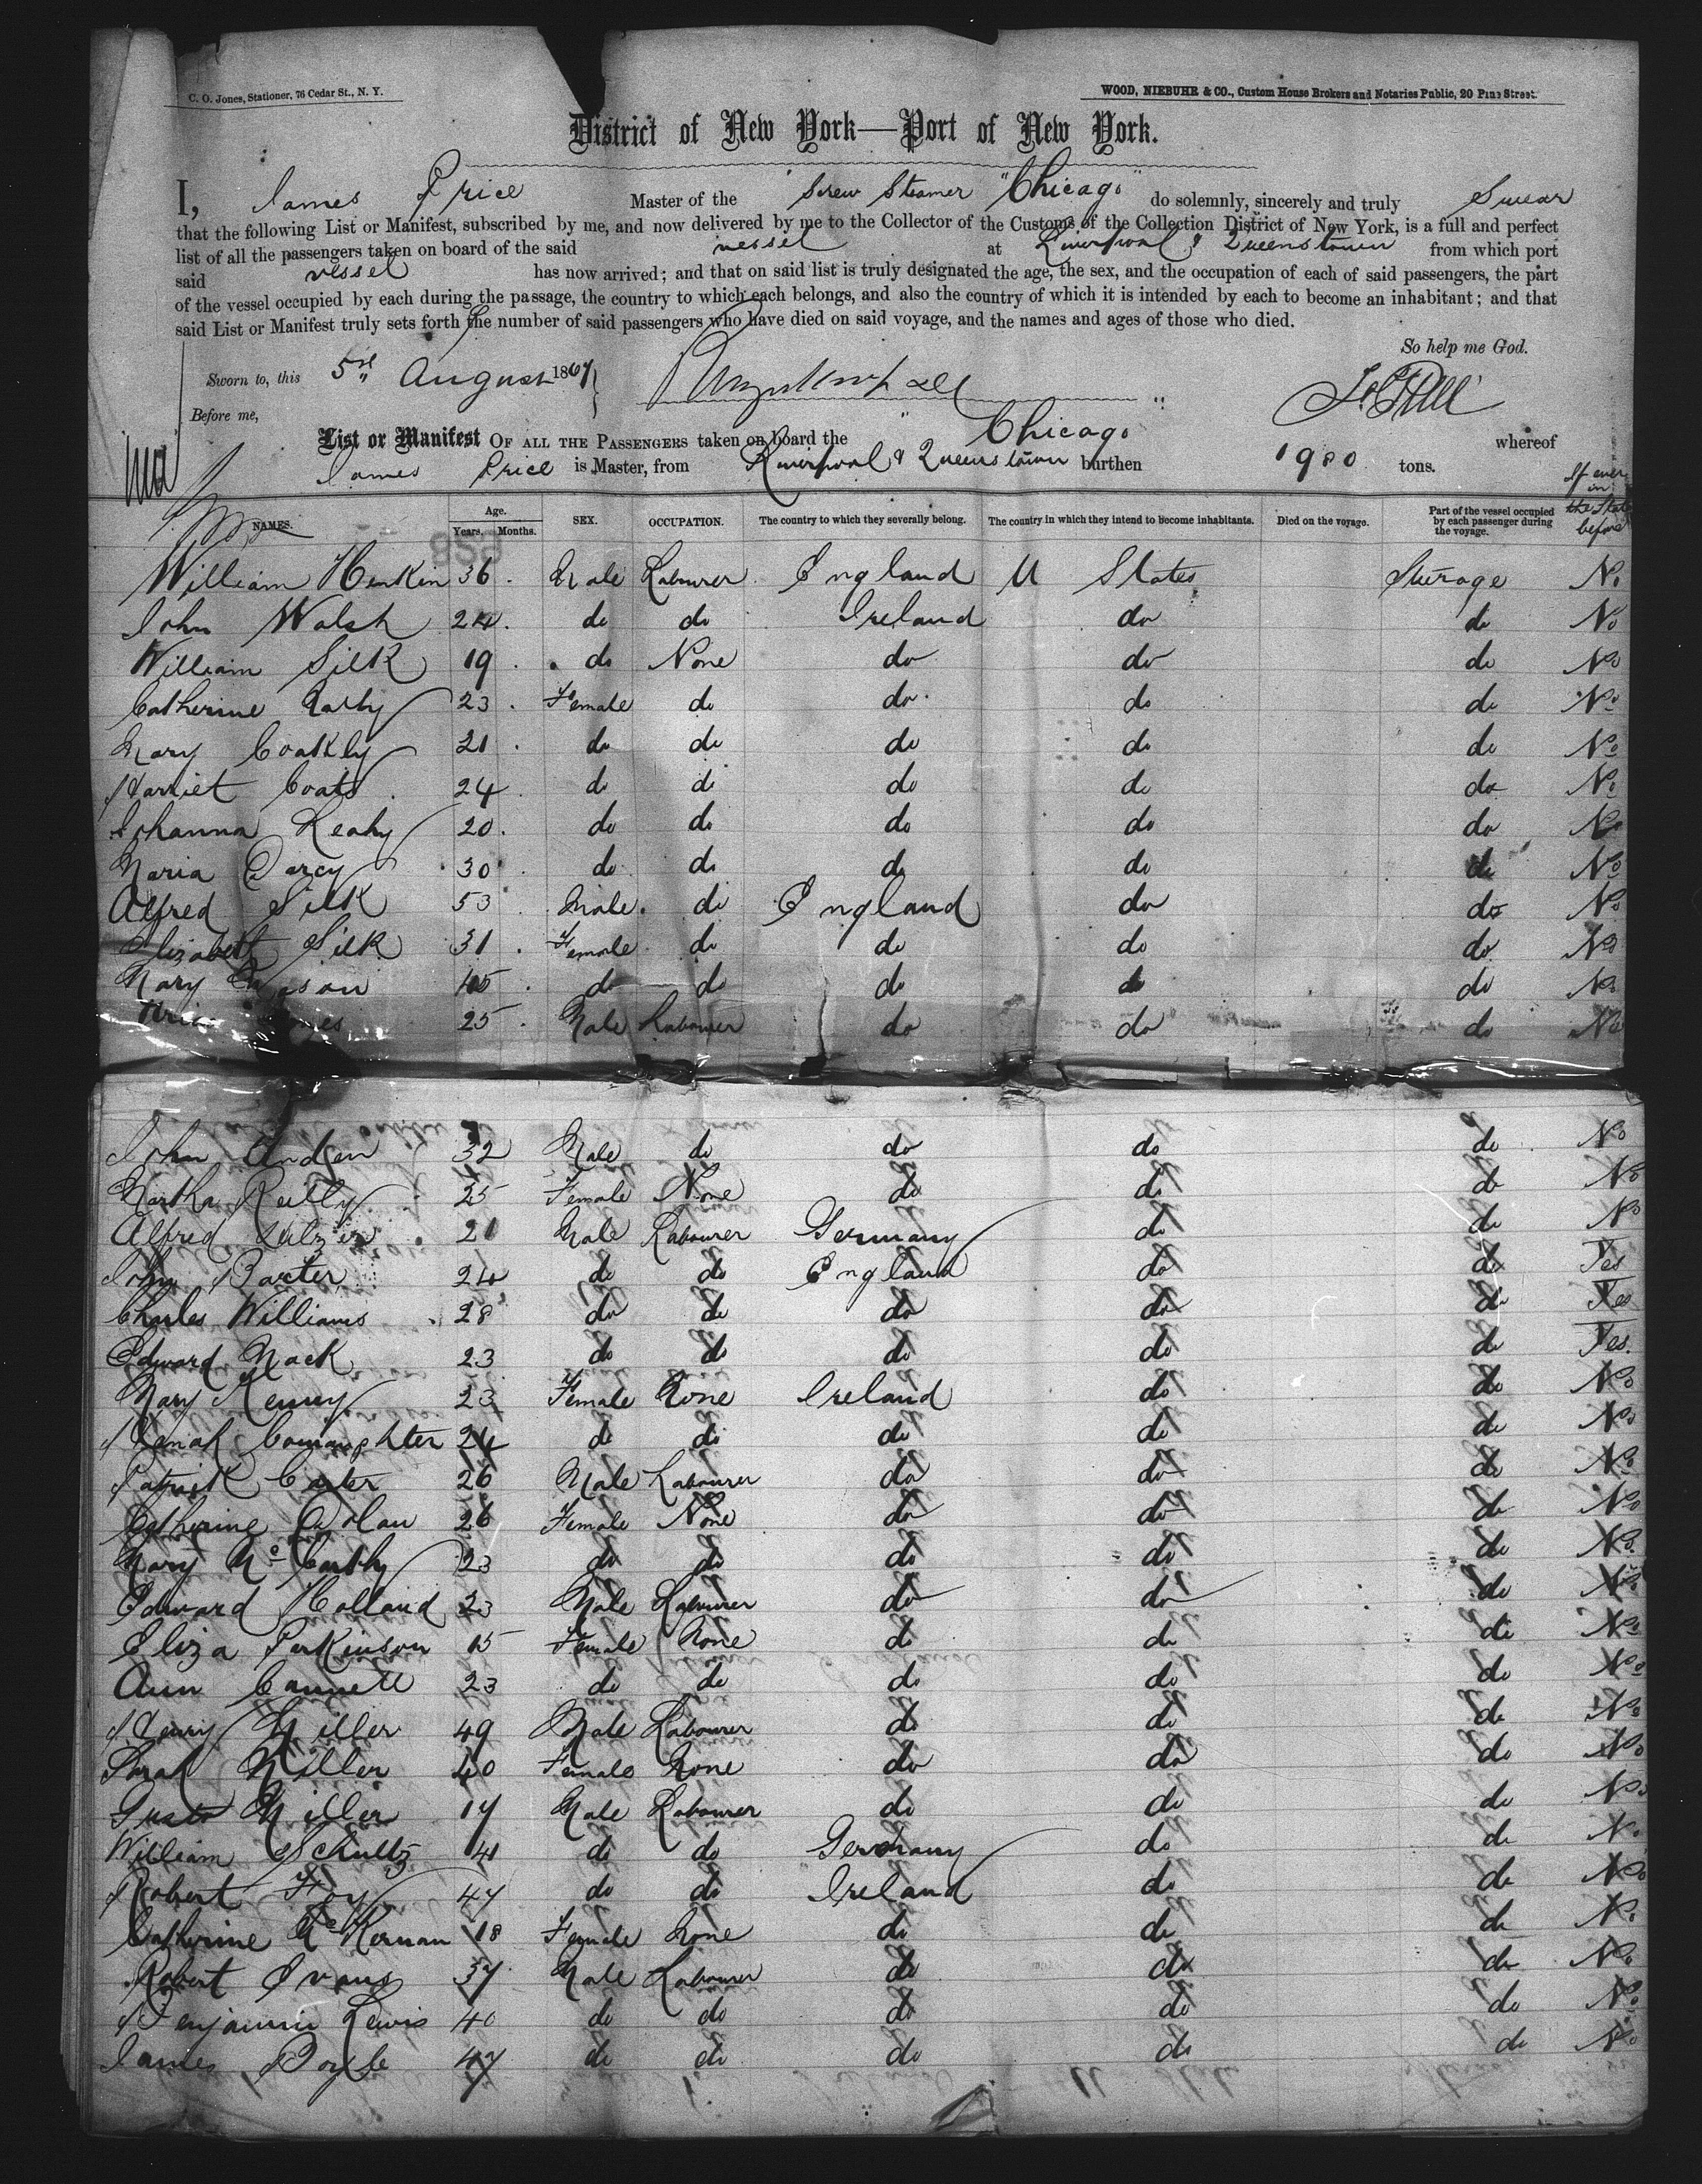 C. O. Jones, Stationer, 76 Cedar St., N. Y.
WOOD, NIEBUHR & CO., Custom House Brokers and Notaries Public, 20 Pine Street.
District of New York—Port of New York.
I, James Price Master of the Screw Steamer "Chicago" do solemnly, sincerely and truly Swear
that the following List or Manifest, subscribed by me, and now delivered by me to the Collector of the Customs of the Collection District of New York, is a full and perfect
list of all the passengers taken on board of the said vessel at Liverpool & Queenstown from which port
said vessel has now arrived; and that on said list is truly designated the age, the sex, and the occupation of each of said passengers, the part
of the vessel occupied by each during the passage, the country to which each belongs, and also the country of which it is intended by each to become an inhabitant; and that
said List or Manifest truly sets forth the number of said passengers who have died on said voyage, and the names and ages of those who died.
So help me God.
Sworn to, this 5 August 1867
Before me,
List or Manifest OF ALL THE PASSENGERS taken on board the Chicago whereof
James Price is Master, from Liverpool & Queenstown burthen 1980 tons.
NAMES. Age. Years. Months. SEX. OCCUPATION. The country to which they severally belong. The country in which they intend to become inhabitants. Died on the voyage. Part of the vessel occupied by each passenger during the voyage. If ever in the States before
William Henkin 36 Male Labourer England U States Steerage No
John Walsh 24 do do Ireland do do No
William Silk 19 do None do do do No
Catherine 23 Female do do do do No
Mary Coakly 21 do do do do do No
Harriet Coats 24 do do do do do No
Johanna Leahy 20 do do do do do No
Maria Darcy 30 do do do do do No
Alfred Silk 53 Male do England do do No
Elizabeth Silk 31 Female do do do do No
Mary 45 do do do do do No
25 Male Labourer do do do No
John Anden 32 Male do do do do No
Martha Reilly 25 Female None do do do No
Alfred 21 Male Labourer Germany do do No
John Baxter 24 do do England do do Yes
Charles Williams 28 do do do do do Yes
Edward Mack 23 do do do do do Yes
Mary Kenny 23 Female None Ireland do do No
Conaughter 24 do do do do do No
Patrick Carter 26 Male Labourer do do do No
Catherine Dolan 26 Female None do do do No
Mary McCarthy 23 do do do do do No
Edward Holland 23 Male Labourer do do do No
Eliza Parkinson 15 Female None do do do No
Ann Cannell 23 do do do do do No
Henry Miller 49 Male Labourer do do do No
Sarah Miller 40 Female None do do do No
Miller 17 Male Labourer do do do No
William Schultz 41 do do Germany do do No
Robert Foy 47 do do Ireland do do No
Catherine McKernan 18 Female None do do do No
Robert Evans 37 Male Labourer do do do No
Benjamin Lewis 40 do do do do do No
James Boyle 47 do do do do do No